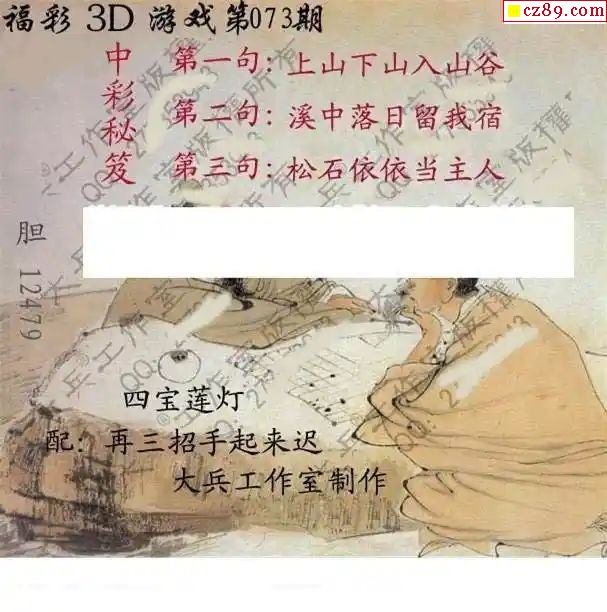 cz89.com
福彩 3D 游戏第073期
中彩秘笈
第一句：上山下山入山谷
第二句：溪中落日留我宿
第三句：松石依依当主人
胆 12479
四宝莲灯
配：再三招手起来迟
大兵工作室制作